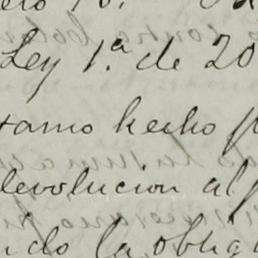 Ley 1.ª de 20
tamo hecho p
devolucion al
ndo la oblig